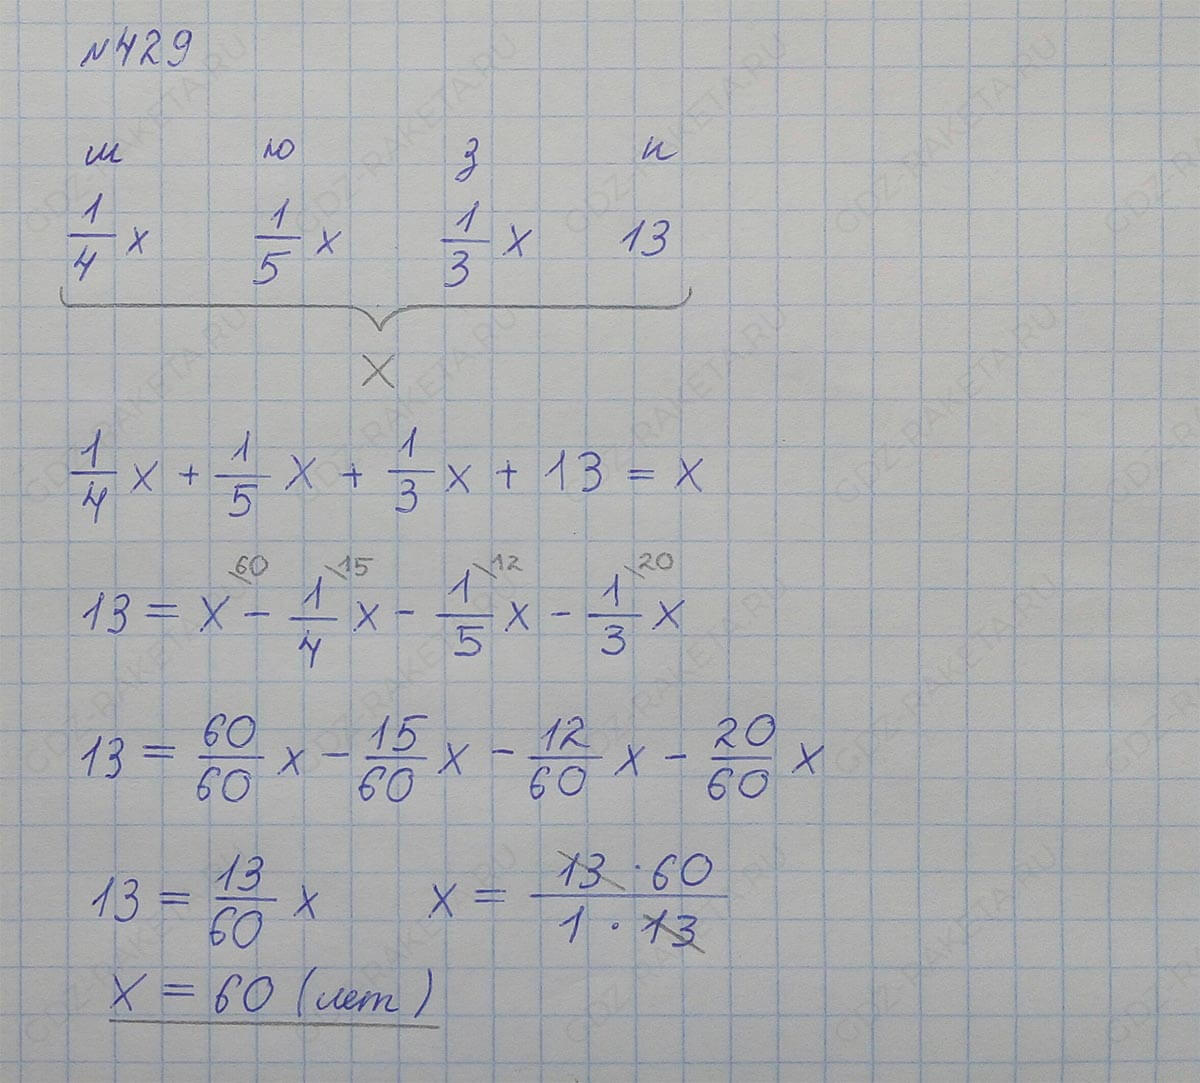 №429
м ю з н
1/4 x 1/5 x 1/3 x 13
x
1/4 x + 1/5 x + 1/3 x + 13 = x
13 = x \60 - 1/4 \15 x - 1/5 \12 x - 1/3 \20 x
13 = 60/60 x - 15/60 x - 12/60 x - 20/60 x
13 = 13/60 x x = 13 · 60 / 1 · 13
x = 60 (лет)
GDZ-RAKETA.RU